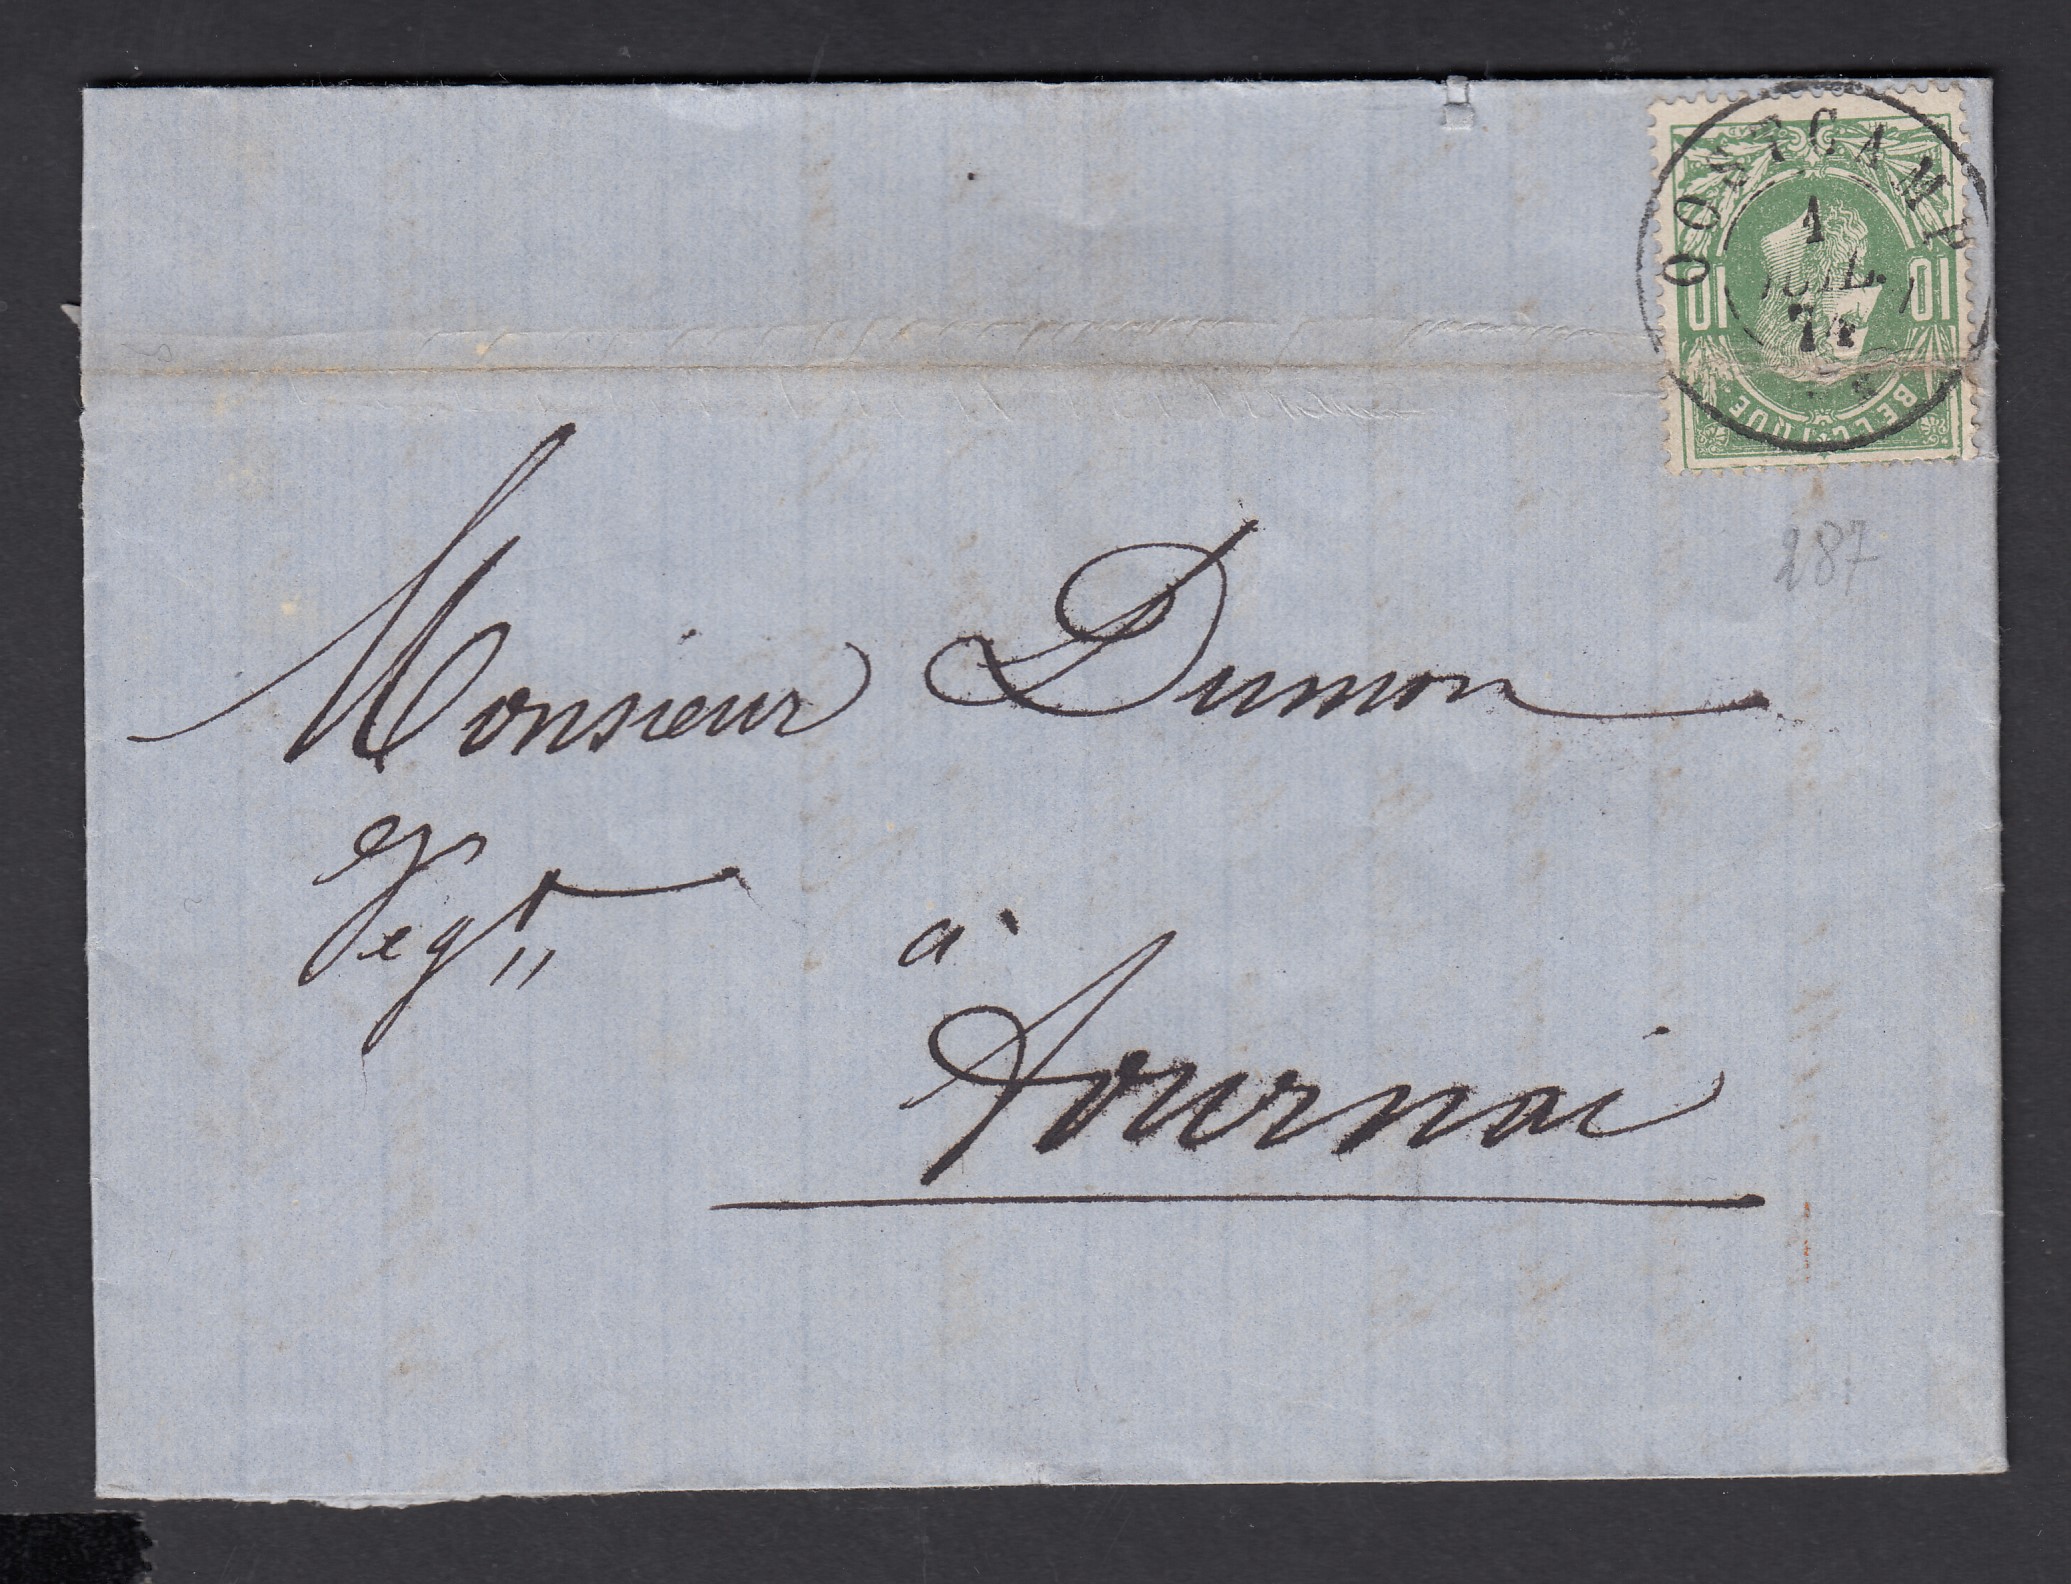 OOSTCAMP
1
JUIL.
74
10 10
BELGIQUE
287
Monsieur Dumon
Negt
à
Tournai